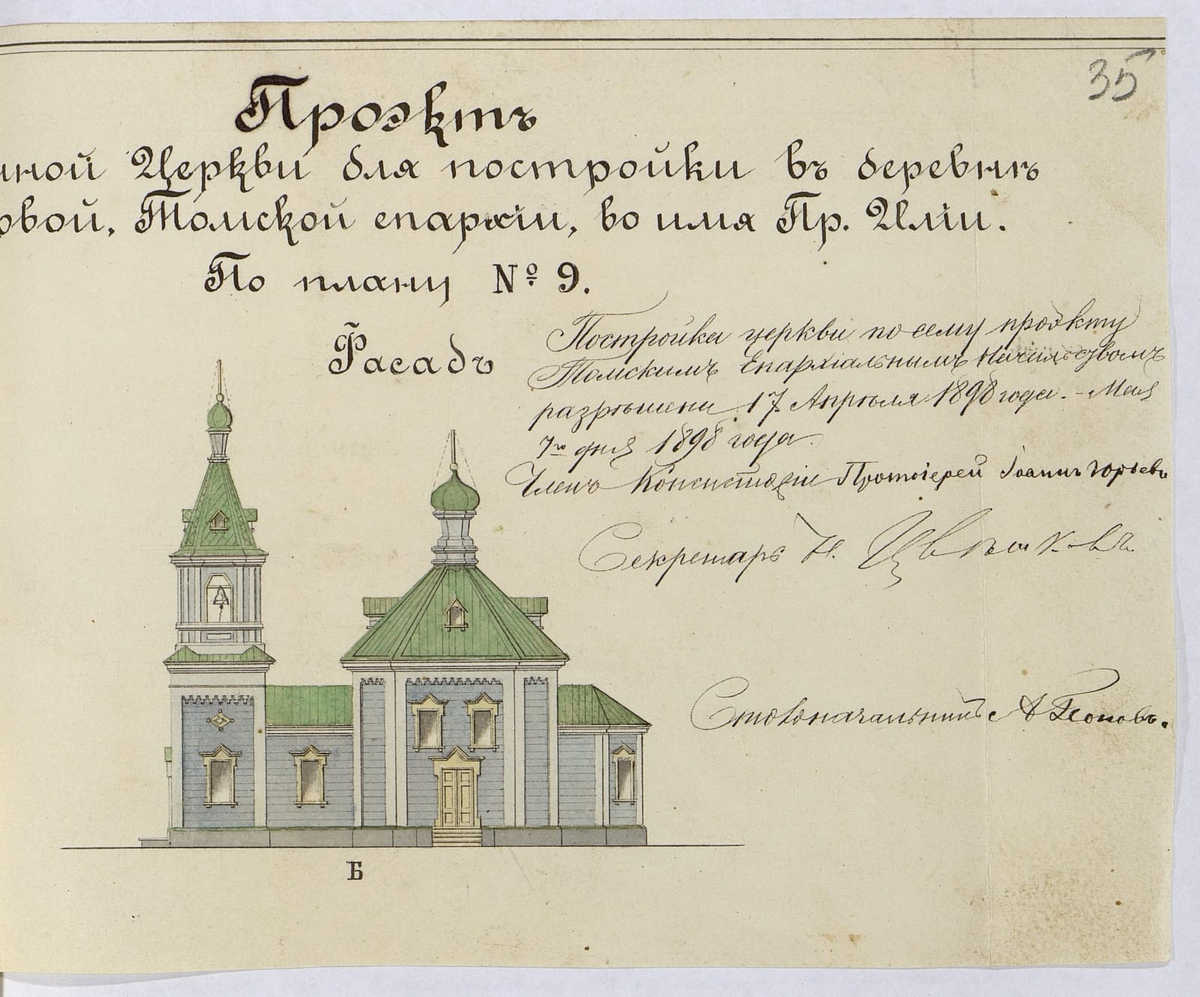 35
Проэктъ
нной Церкви для постройки въ деревнѣ
овой, Томской епархіи, во имя Пр. Иліи.
По плану № 9.
Фасадъ
Постройка церкви по сему проэкту
Томскимъ Епархіальнымъ Начальствомъ
разрѣшена 17 Апрѣля 1898 года. - Мая
7го дня 1898 года.
Членъ Консисторіи Протоіерей Іоаннъ
Секретарь Н.
Столоначальникъ А
Б